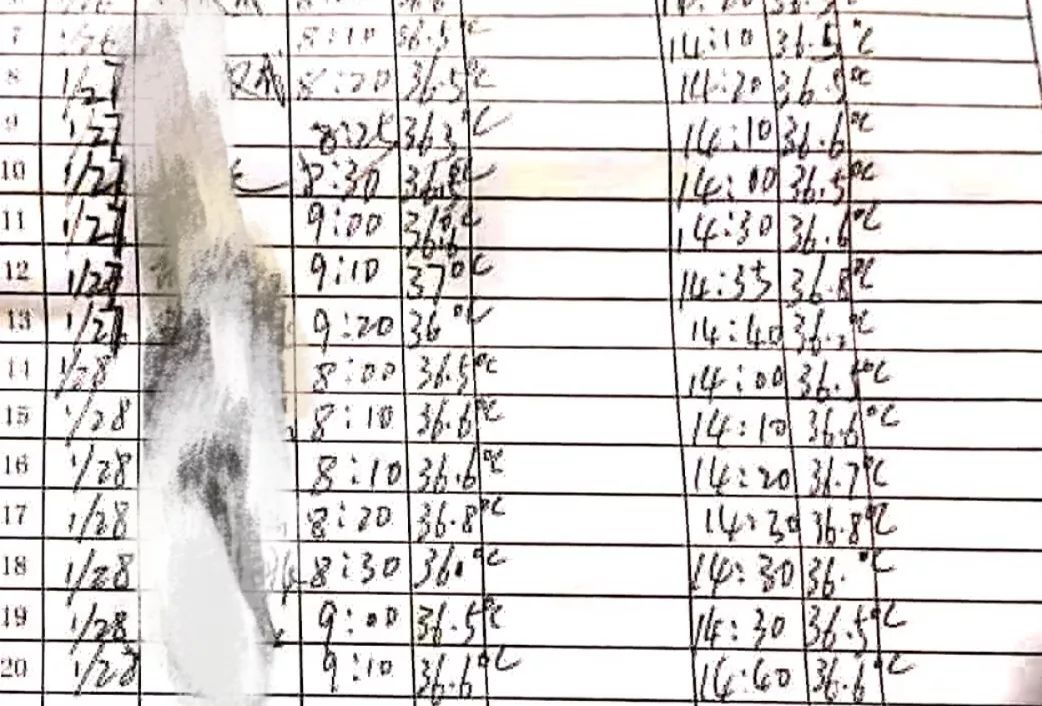 7 8:10 36.5℃ 14:10 36.5℃
8 1/27 8:20 36.5℃ 14:20 36.5℃
9 1/27 8:25 36.5℃ 14:10 36.6℃
10 1/27 8:30 ℃ 14:00 36.5℃
11 1/27 9:00 36.6℃ 14:30 36.6℃
12 1/27 9:10 37℃ 14:35 36.8℃
13 1/27 9:20 36℃ 14:40 ℃
14 1/28 8:00 36.5℃ 14:00 36.5℃
15 1/28 8:10 36.6℃ 14:10 36.6℃
16 1/28 8:10 36.6℃ 14:20 36.7℃
17 1/28 8:20 36.8℃ 14:30 36.8℃
18 1/28 8:30 36.℃ 14:30 36.℃
19 1/28 9:00 36.5℃ 14:30 36.5℃
20 1/28 9:10 36.6℃ 14:40 36.6℃